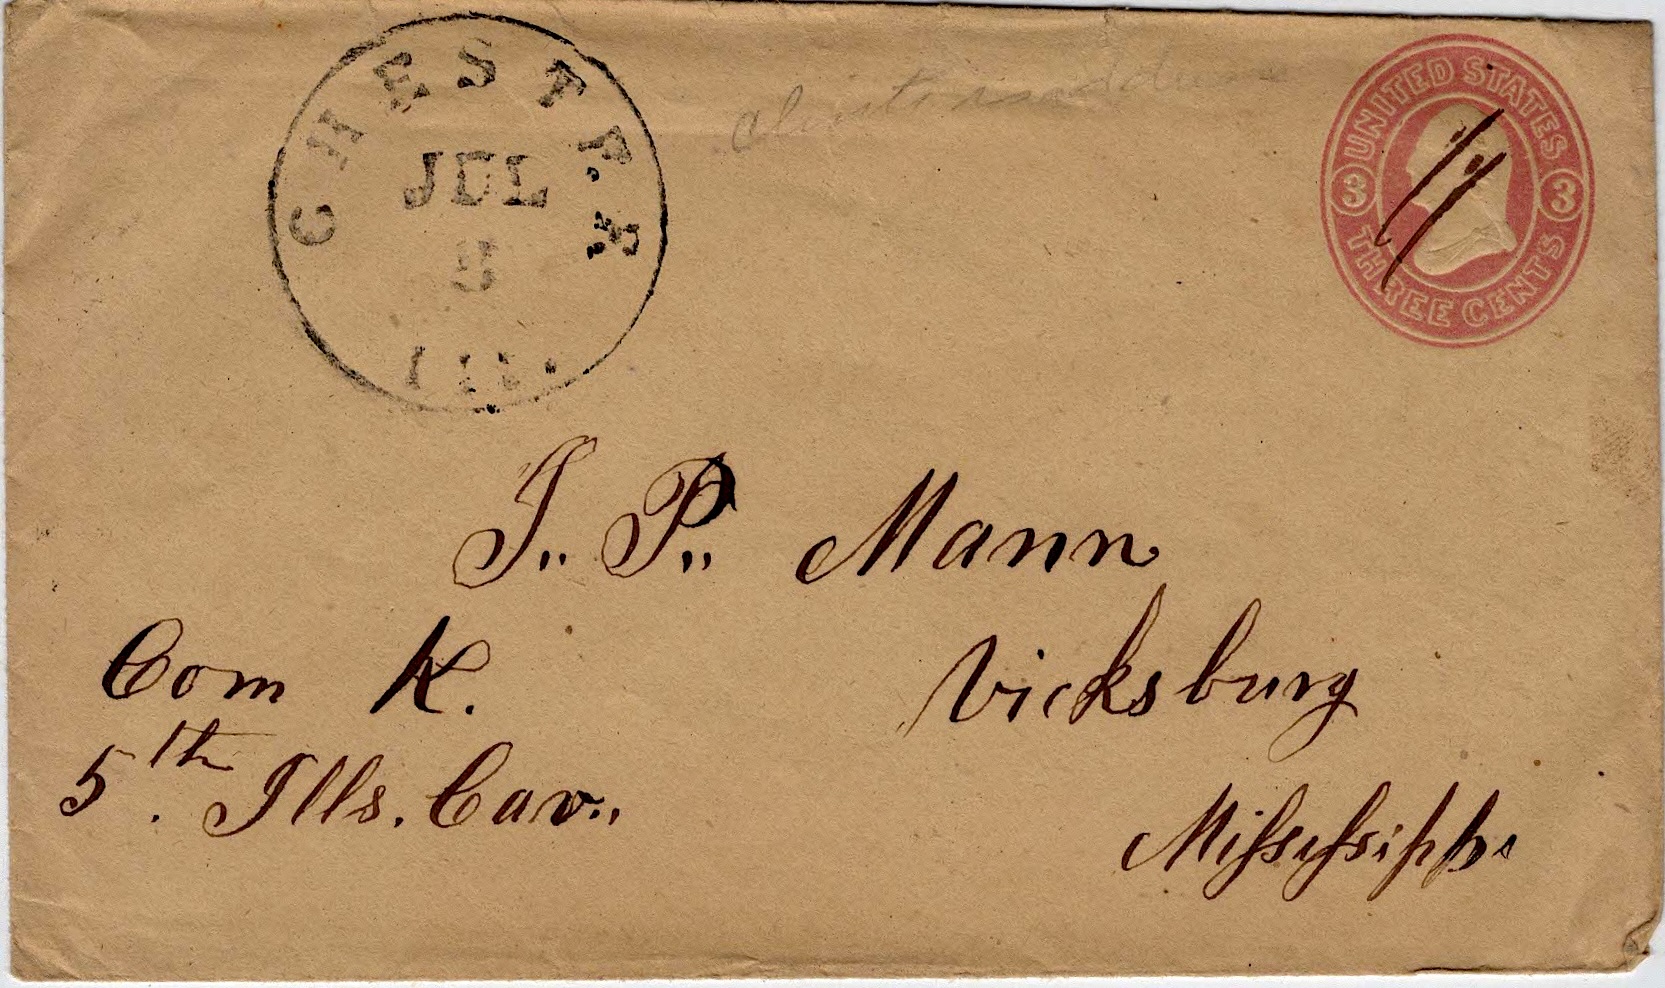 CHESTER
JUL
ILL.
UNITED STATES
3 3
THREE CENTS
J. P. Mann
Com K.
5th. Ills. Cav.
Vicksburg
Mississippi